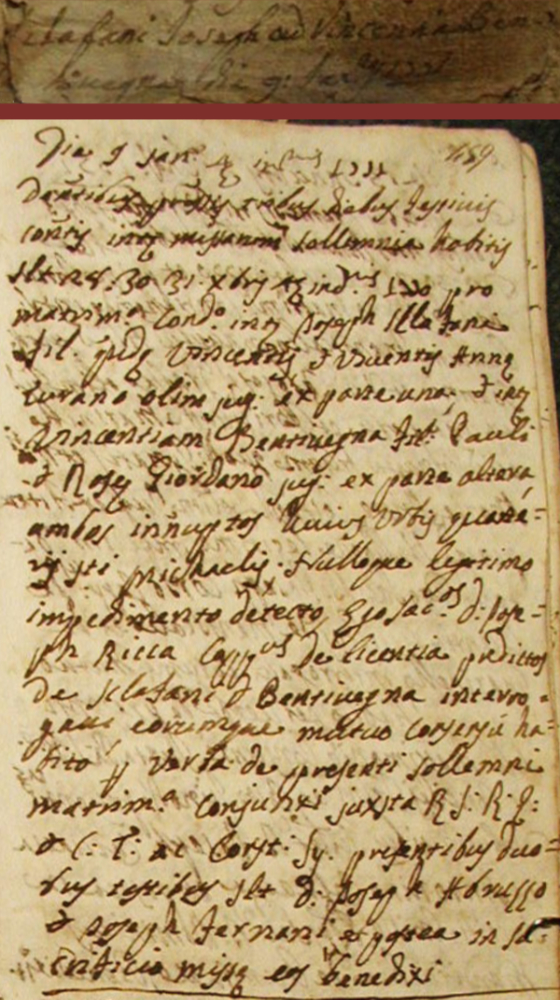 Sclafani Joseph cum Vincentia Benti-
vegna
Die 9 Jan. 4 ind.nis 1711 159
tribus diebus festivis
contis inter missarum sollemnia habitis
slt 28. 30 31 Xbris 4 ind.nis 1710 pro
matrim.o cond.o inter Joseph Sclafani
fil. Vincentij & Viventis Anna
Curano olim jug: ex parte una, & inter
Vincentiam Bentivegna fil. Pauli
& Rosę Giordano jug: ex parte altera
ambos innuptos huius Urbis quarte=
rij Sti Michaelis. Nulloque legitimo
impedimento detecto, Ego Sac.os d: Jose=
ph Ricca Capp.us de licentia predictos
de Sclafani & Bentivegna interro=
gavi, eorumque mutuo consensu ha=
bito p verba de presenti sollemni
matrim.o conjunxi juxta R: S: R: E:
& C: T: ac Const: Sy. presentibus duo=
bus testibus slt D: Joseph Abruzzo
& Joseph Ferrani et postea in sa=
crificio missę eos benedixi